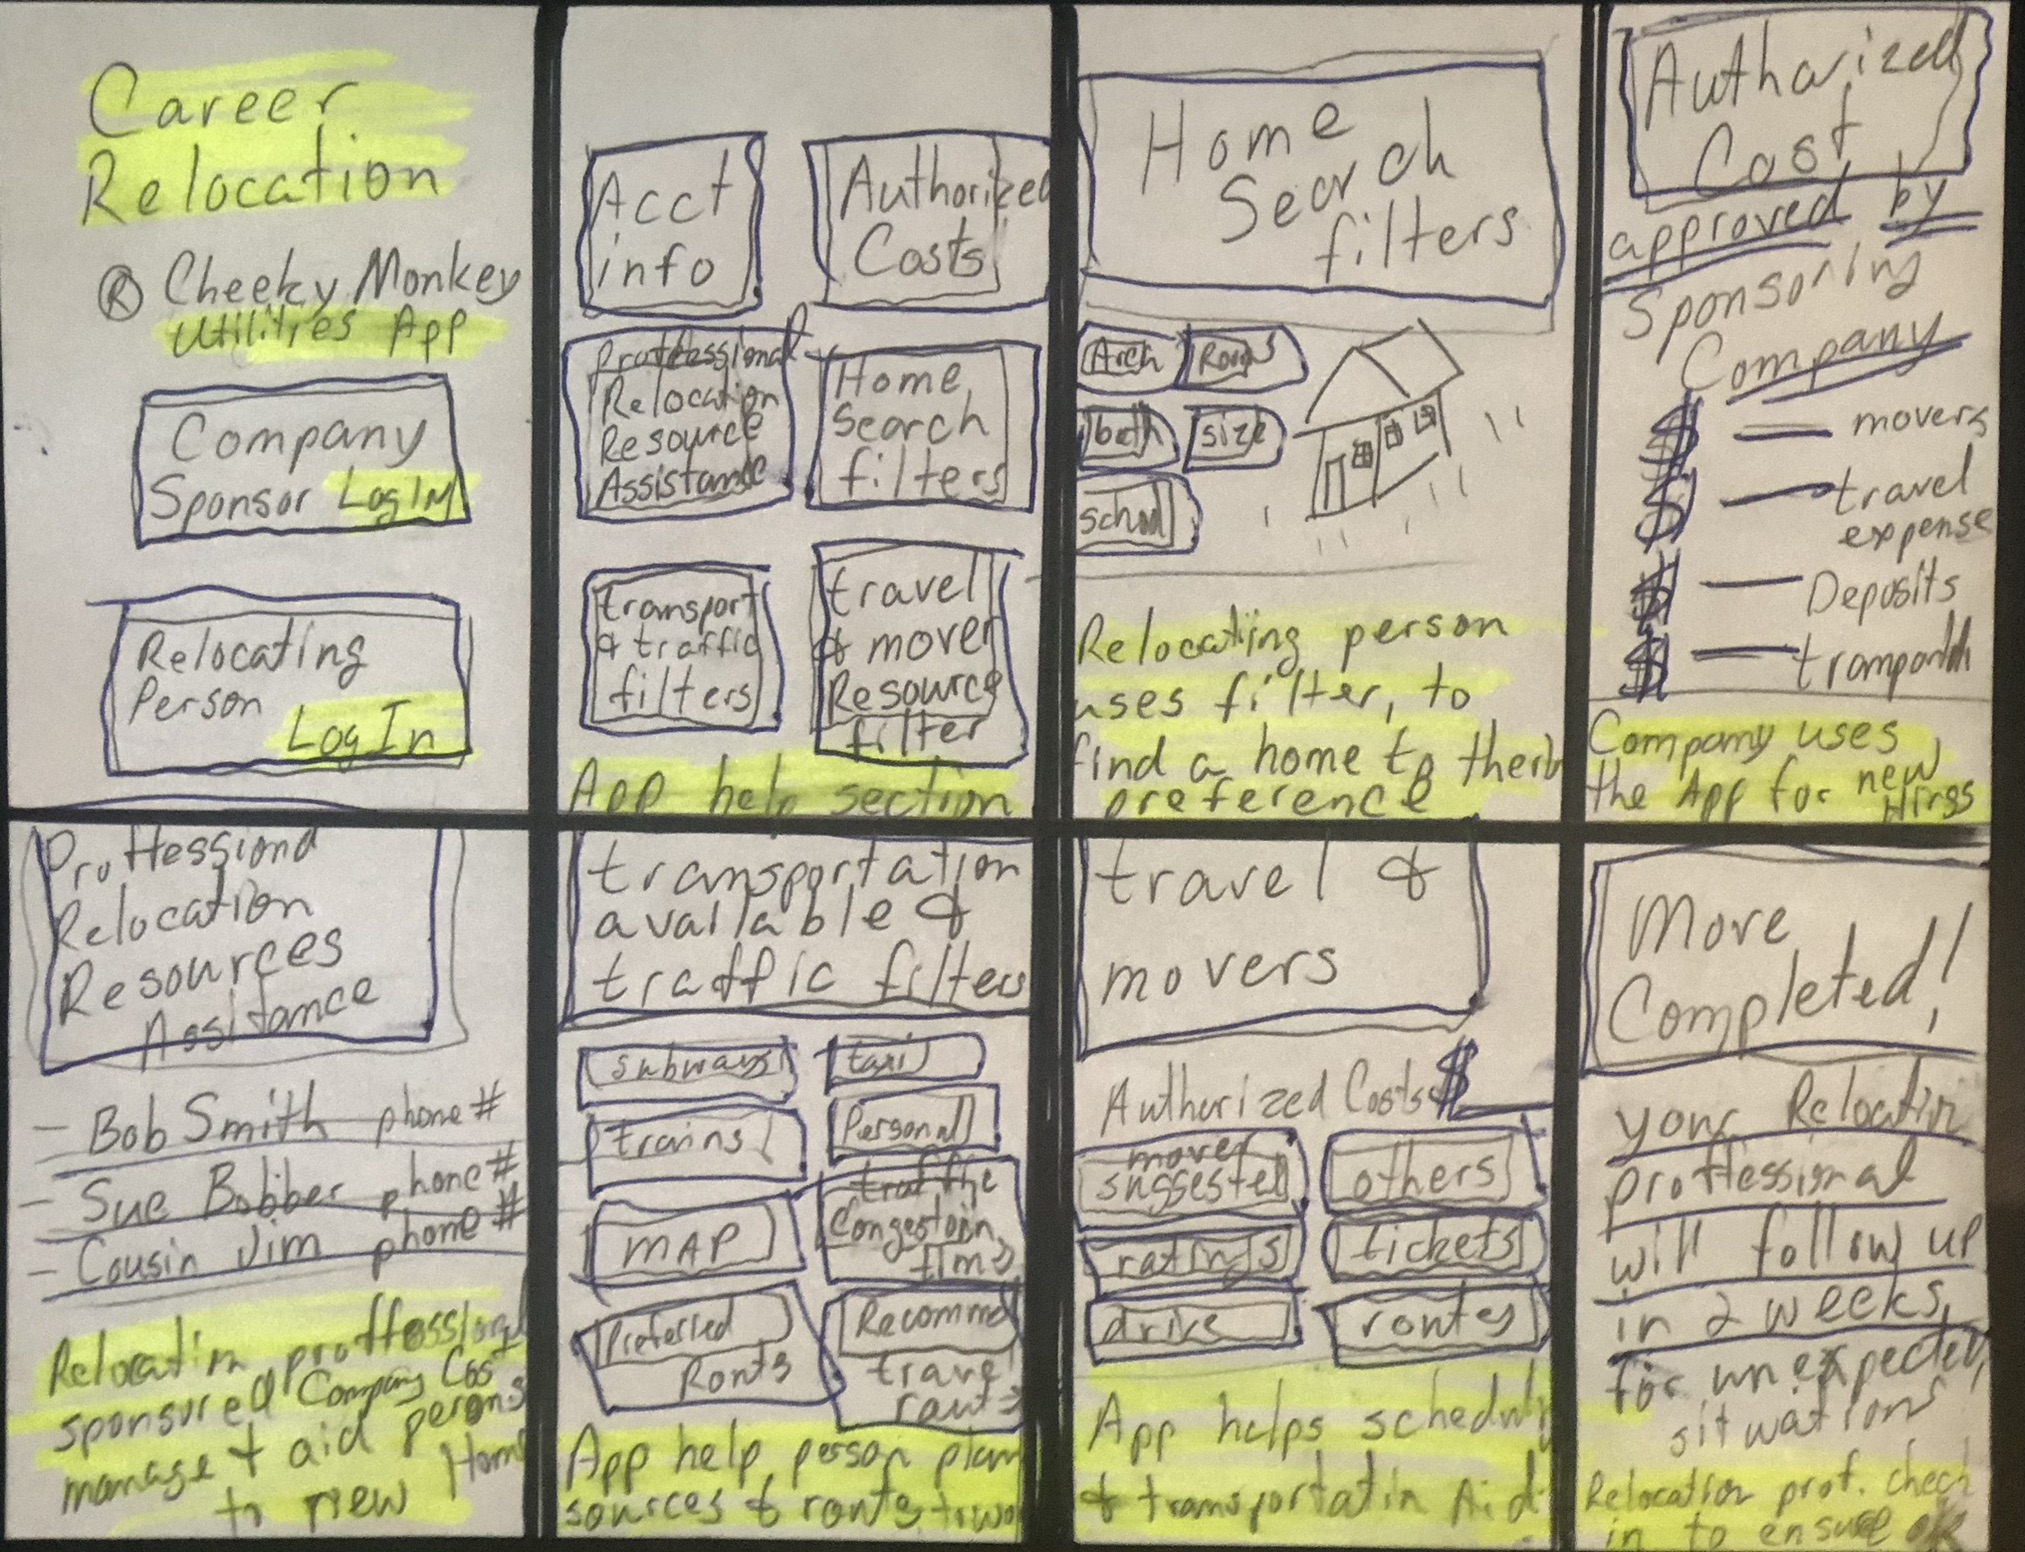 Career
Relocation
® Cheeky Monkey
Utilities App
Company
Sponsor Log In
Relocating
Person
Log In
Acct
info
Authorized
Costs
Proffessional
Relocation
Resource
Assistance
Home
Search
filters
transport
& traffic
filters
travel
& mover
Resource
filter
App help section
Home
Search
filters
Arch
Rooms
bath
size
school
Relocating person
uses filter, to
find a home to their
preference
Authorized
Cost
approved by
Sponsoring
Company
$ — movers
$ — travel
expense
$ — Deposits
$ —
Company uses
the App for new
Hires
Proffessional
Relocation
Resources
Assistance
- Bob Smith phone #
- Sue Bobber phone #
- Cousin Jim phone #
Relocation proffessional
sponsured Company Cost
manage & aid persons
to new Home
transportation
available &
traffic filters
subways
taxi
trains
Personal
MAP
traffic
Congestion
times
Preferred
Routs
Recommed
travel
routs
App help person plan
sources & routs to work
travel &
movers
Authorized Costs $
mover
suggested
others
ratings
tickets
drive
routes
App helps schedule
& transportatin Aid
Move
Completed!
your Relocation
proffessional
will follow up
in 2 weeks,
for unexpected
situations
Relocation prof. check
in to ensure ok